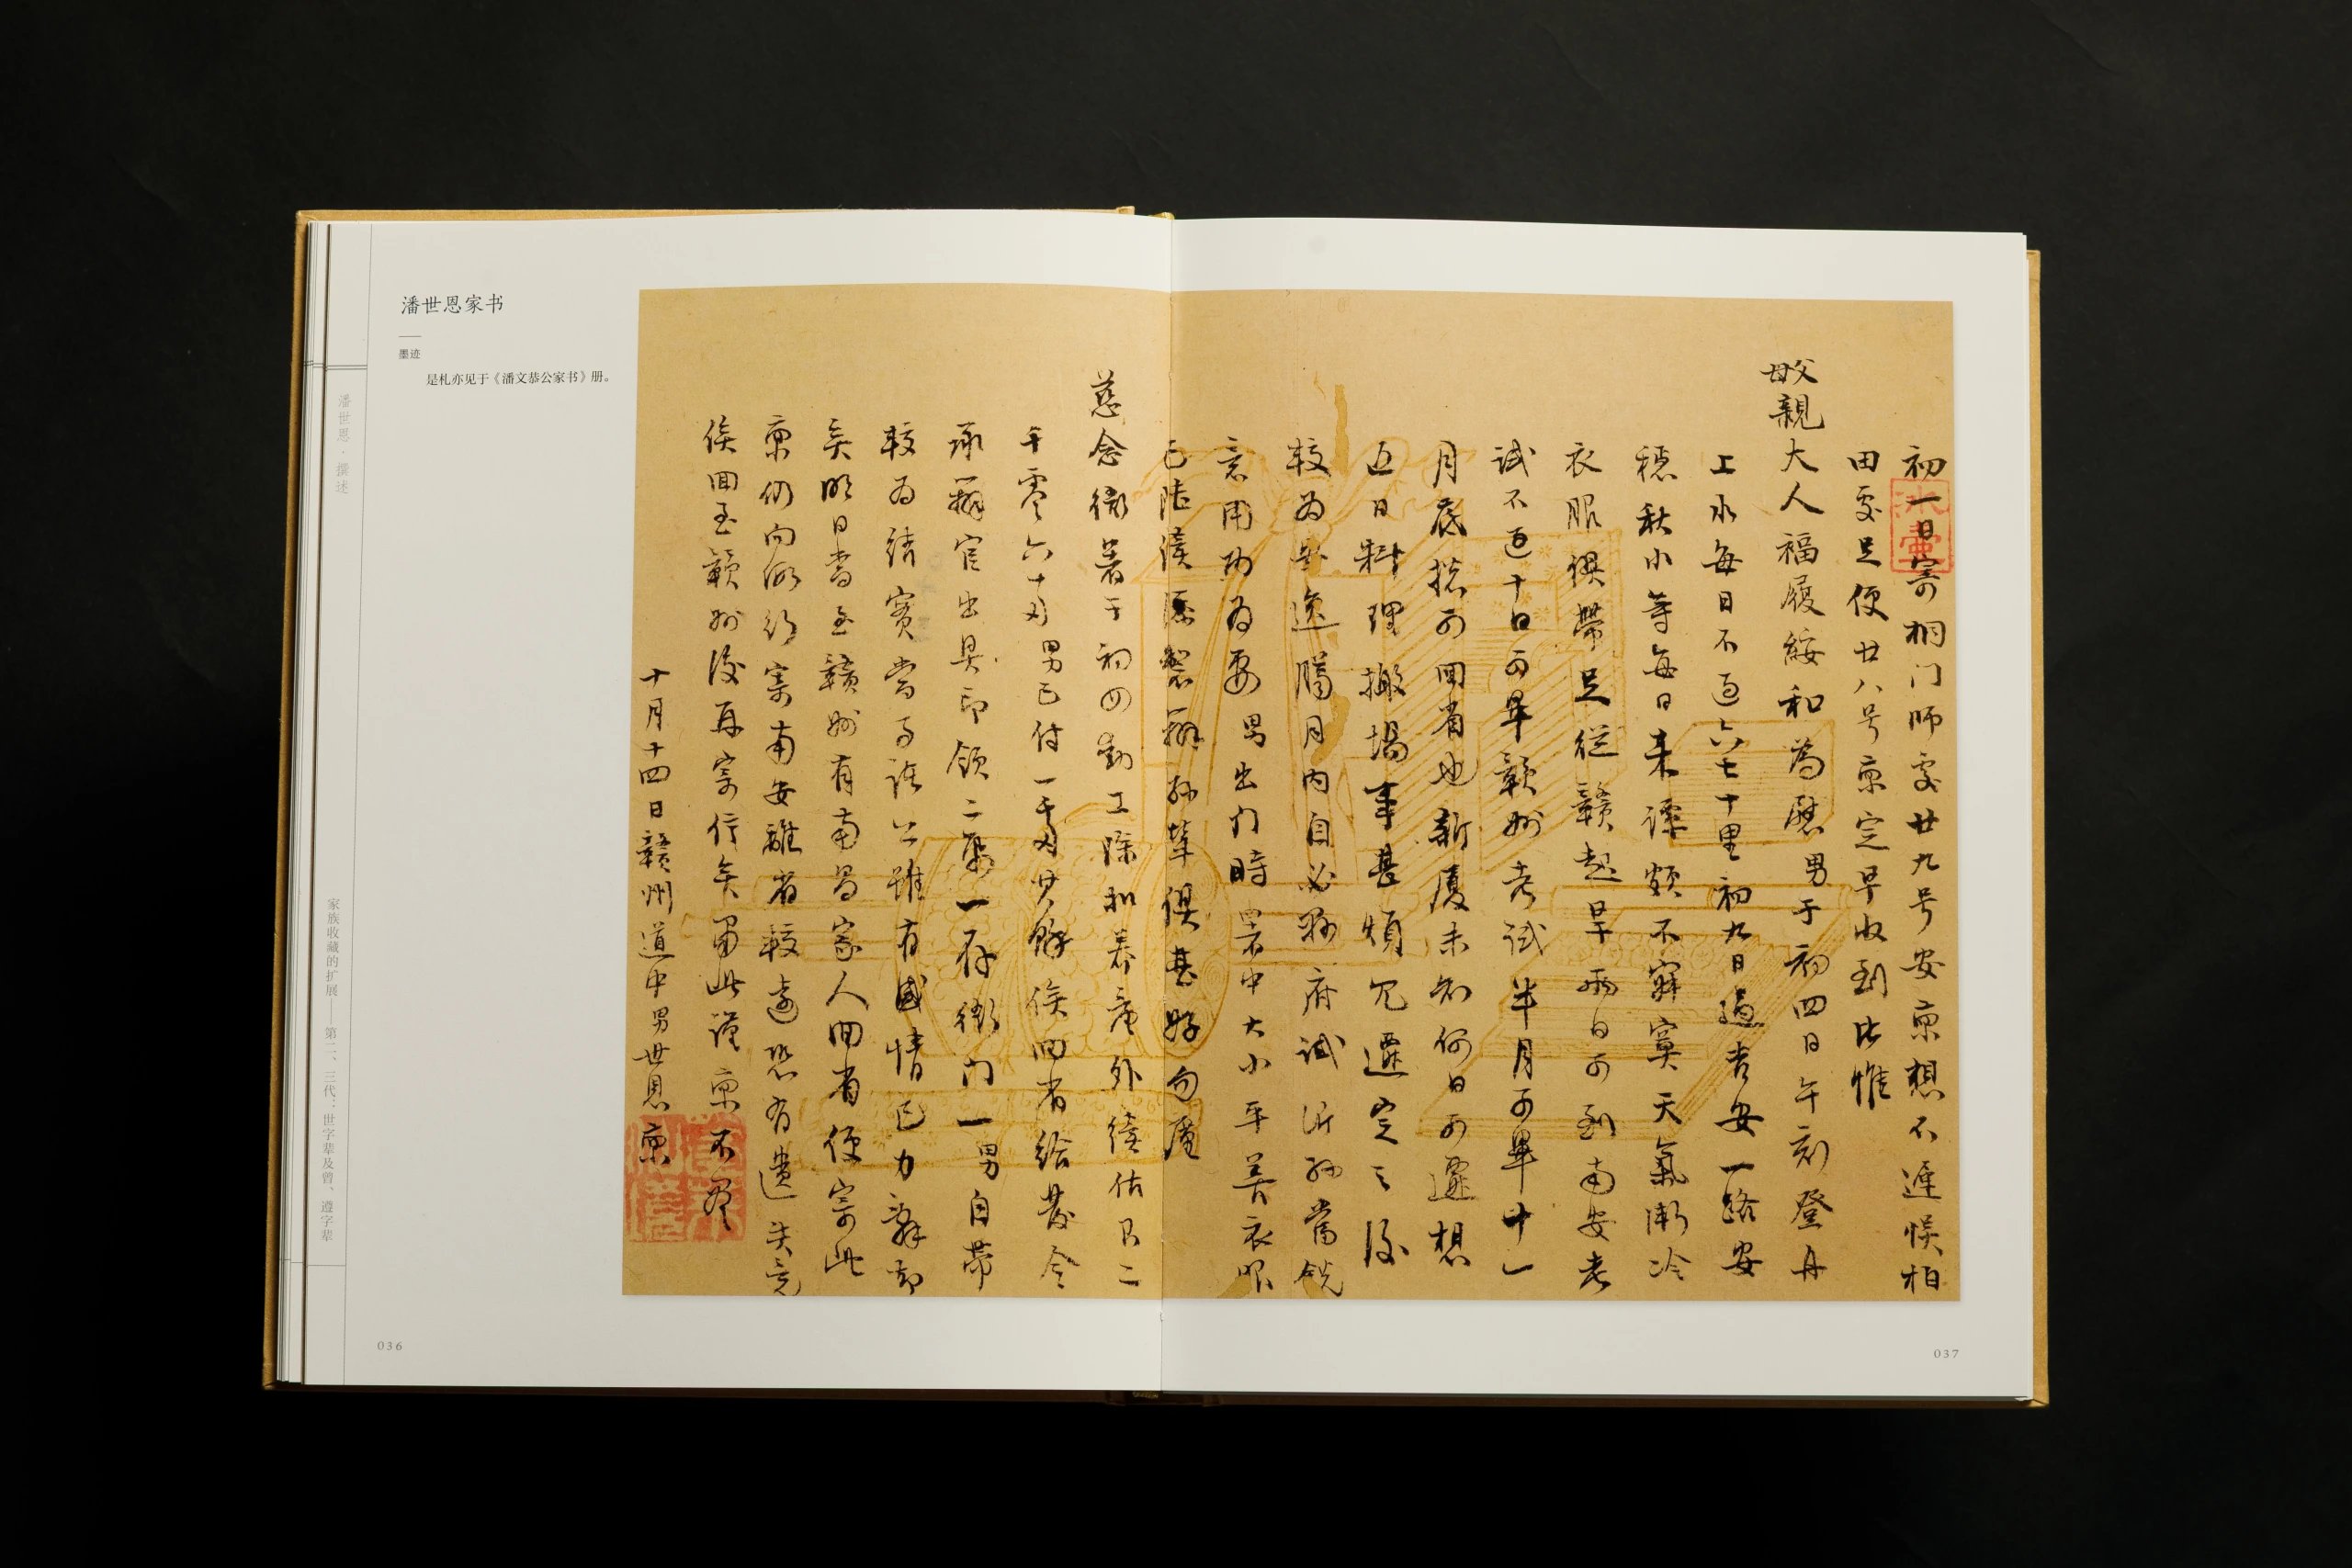 潘世恩家书
墨迹
是札亦见于《潘文恭公家书》册。
潘世恩·撰述
家族收藏的扩展——第二、三代：世字辈及曾、遵字辈
036
初一日寄桐门师处廿九号安禀想不迟悞柏
田处足便廿八号禀定早收到比惟
父母親大人福履綏和為慰男于初四日午刻登舟
上水每日不過六七十里初九日過吉安一路安
穏秋小等每日来譚頗不寂寞天氣漸冷
衣服俱帶足從贛起旱兩日可到南安考
試不过十日可畢贛州考試半月可畢十一
月底接可回省也新厦未知何日可遷想
近日料理搬場事甚煩冗遷定之後
較为安逸臈月內自必縣府試沂孙當銳
意用功为要男出门時署中大小平善衣服
已陸續添製二孙輩俱甚好勿廑
慈念衙署于初四動工除扣养產外續估只二
千零六十刄男已付一千刄其餘俟回省給發令
承辦官出具印領二第一存衙门一男自帶
較为結實當事諸公雖有國情已力辭却
矣明日當至贛州有南昌家人回省便寄此
禀仍向例行寄南安離省較遠恐有遺失竟
俟回至贛州後再寄信矣肅此謹禀不盡
十月十四日贛州道中男世恩禀
冰壷
037